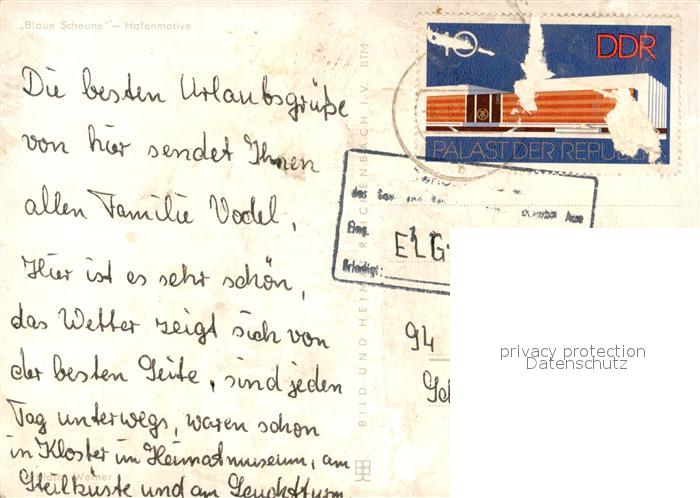 „Blaue Scheune" – Hafenmotive
Die besten Urlaubsgrüße
von hier sendet Ihnen
allen Familie Vodel,
Hier ist es sehr schön,
das Wetter zeigt sich von
der besten Seite, sind jeden
Tag unterwegs, waren schon
in Kloster im Heimatmuseum, am
Steilküste und am Leuchtturm
BILD UND HEIM REICHENBACH I. V. BTM
DDR
PALAST DER REPU
Eing.
ELG
Erledigt:
94
privacy protection
Datenschutz